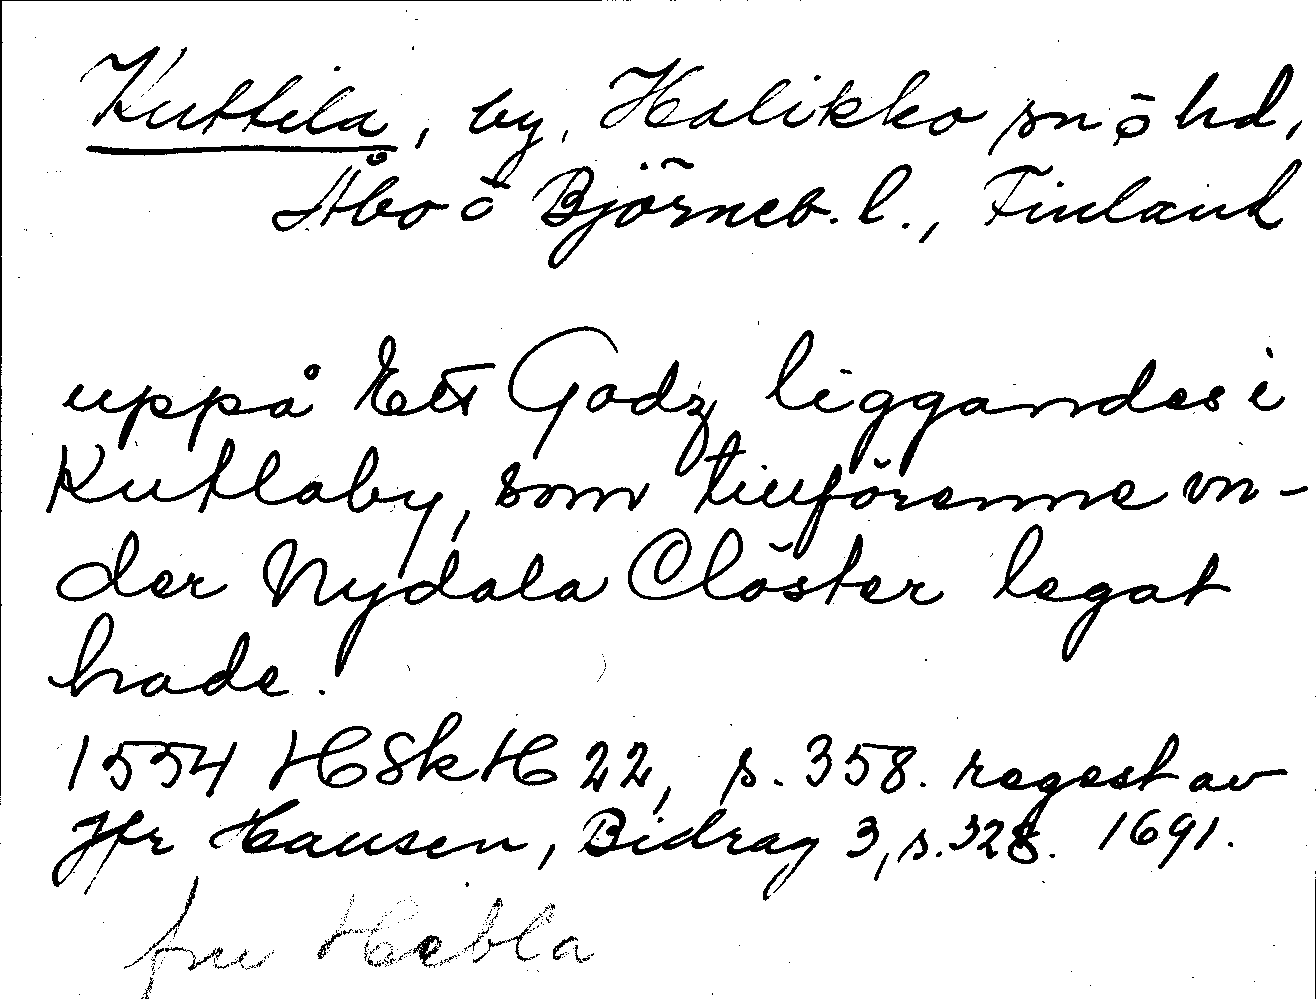 Kuttila, by, Halikko sn o hd,
Åbo o Björneb. l., Finland
uppå Ett Godz liggandes i
Kutlaby, som tiuförenne vn-
der Nydala Clöster legat
hade.
1554 HSkH 22, s. 358. regest av
Jfr Hausen, Bidrag 3, s. 328. 1691.
fru Hebla